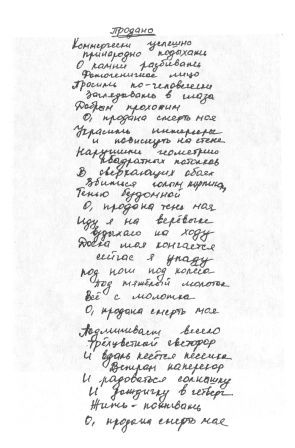 Продано
Коммерчески успешно
принародно подыхать
О камни разбивать
Фотогеничное лицо
Просить по-человечески
Заглядывать в глаза
Добрым прохожим
О, продана смерть моя
Украсить интерьеры
и повиснуть на стене
Нарушить геометрию
квадратных потолков
В сверкающих обоях
биться голым
Тенью бездомной
О, продана тень моя
Иду я на верёвочке
вздыхаю на ходу
Доска моя кончается
сейчас я упаду
под ноги под колёса
под тяжёлый молоток
Всё с молотка
О, продана смерть моя
Подмигивает весело
трёхцветный светофор
И вдаль несётся песенка
ветрам наперекор
И радоваться солнышку
И дождичку в четверг
Жить-поживать
О, продана смерть моя